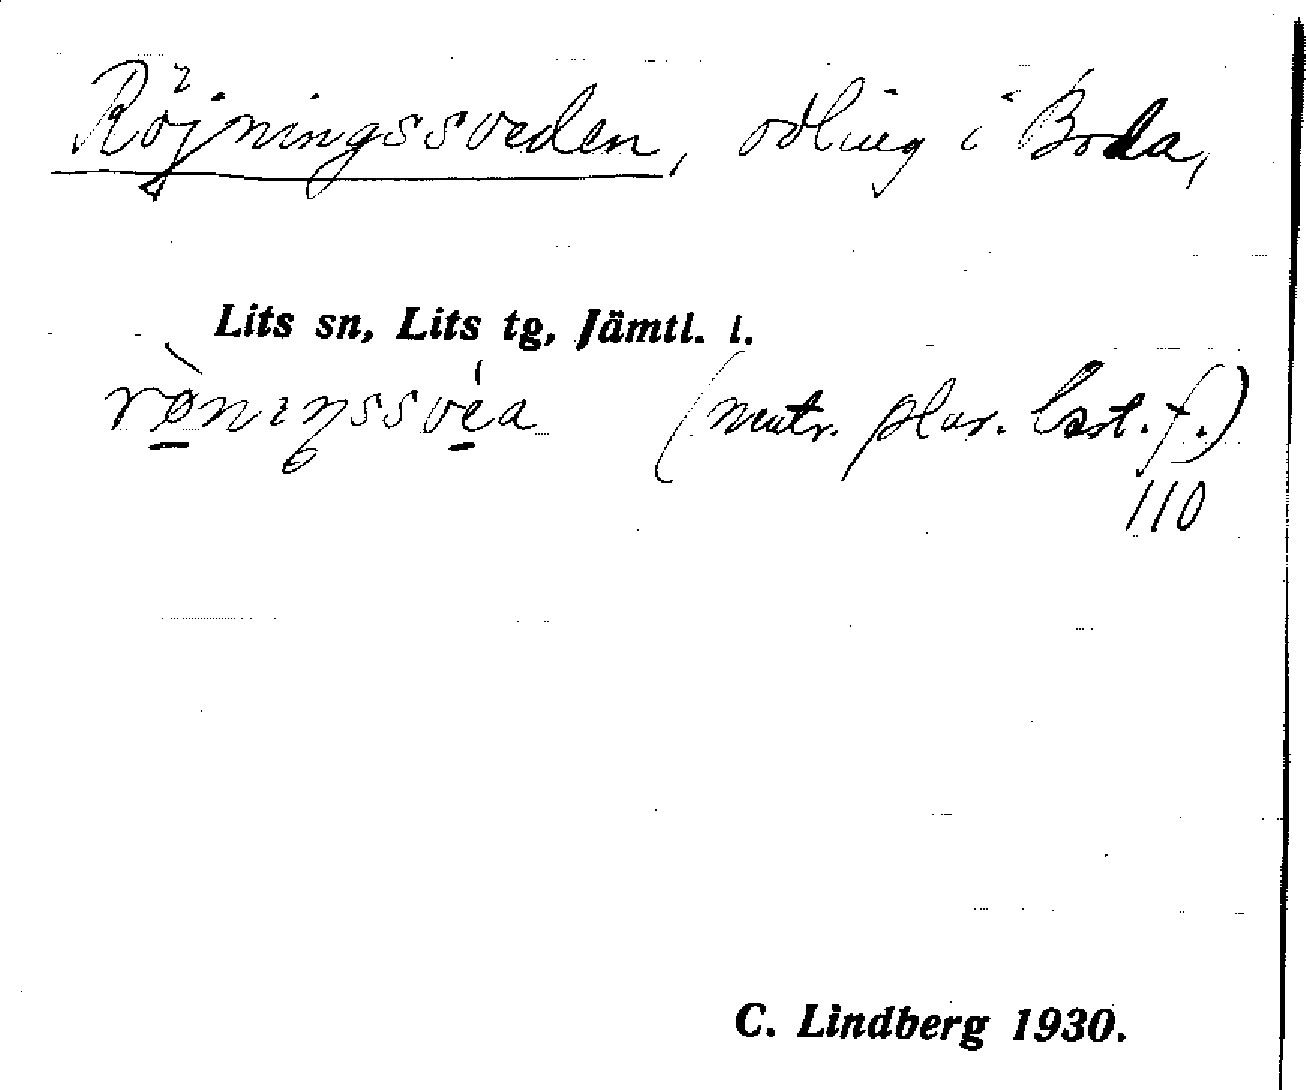 Röjningssveden, odling i Boda,
Lits sn, Lits tg, Jämtl. l.
rø̱̀niŋssvé̱a (neutr. plur. best. f.)
110
C. Lindberg 1930.